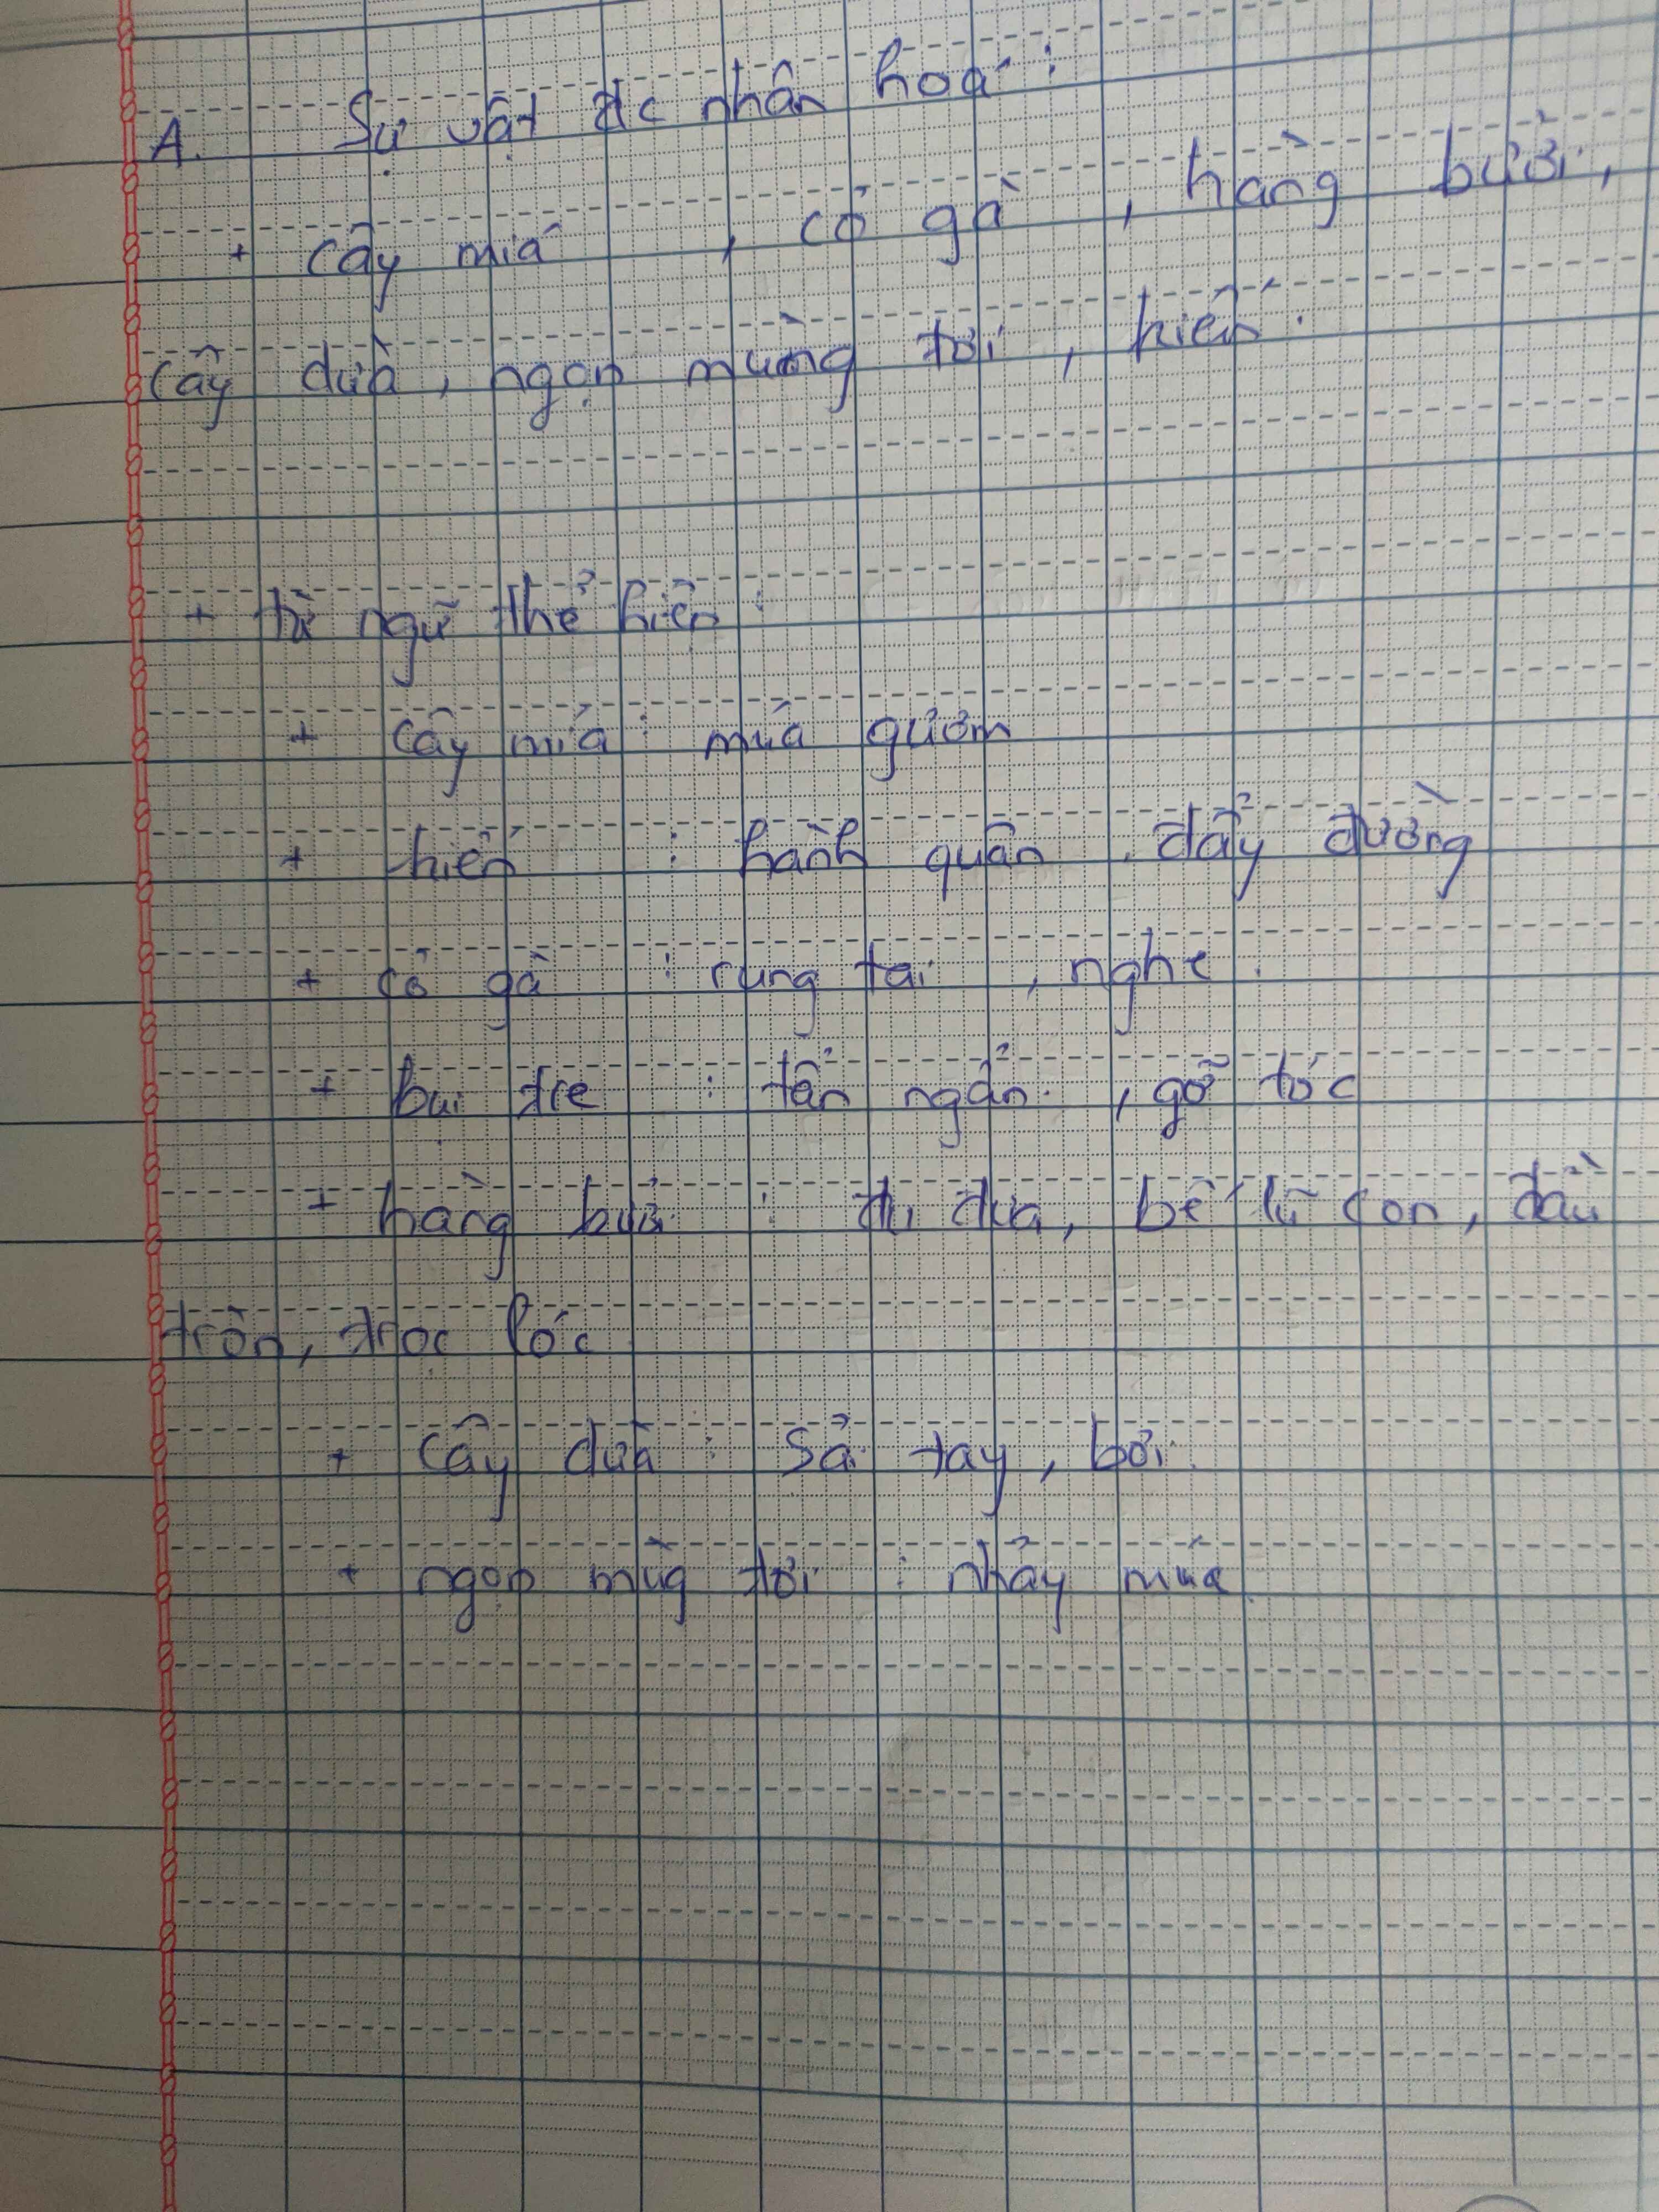 A. Sự vật đc nhân hoá :
+ cây mía , cỏ gà , hàng bưởi,
cây dừa, ngọn mùng tơi, kiến.
+ từ ngữ thể hiện :
+ cây mía : múa gươm
+ kiến : hành quân , đầy đường
+ cỏ gà : rung tai , nghe.
+ bụi tre : tần ngần. , gỡ tóc
+ hàng bưởi : đu đưa, bế lũ con, đầu
tròn, trọc lóc.
+ Cây dừa : sải tay, bơi.
+ ngọn mùg tơi : nhảy múa.